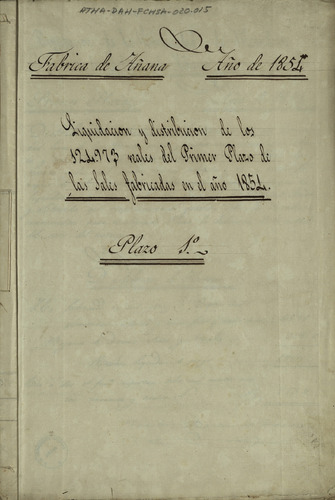 ATHA-DAH-FCMSA-020.015
Fabrica de Añana Año de 1854
Liquidacion y distribucion de los
124973 reales del Primer Plazo de
las Sales fabricadas en el año 1854.
Plazo 1º